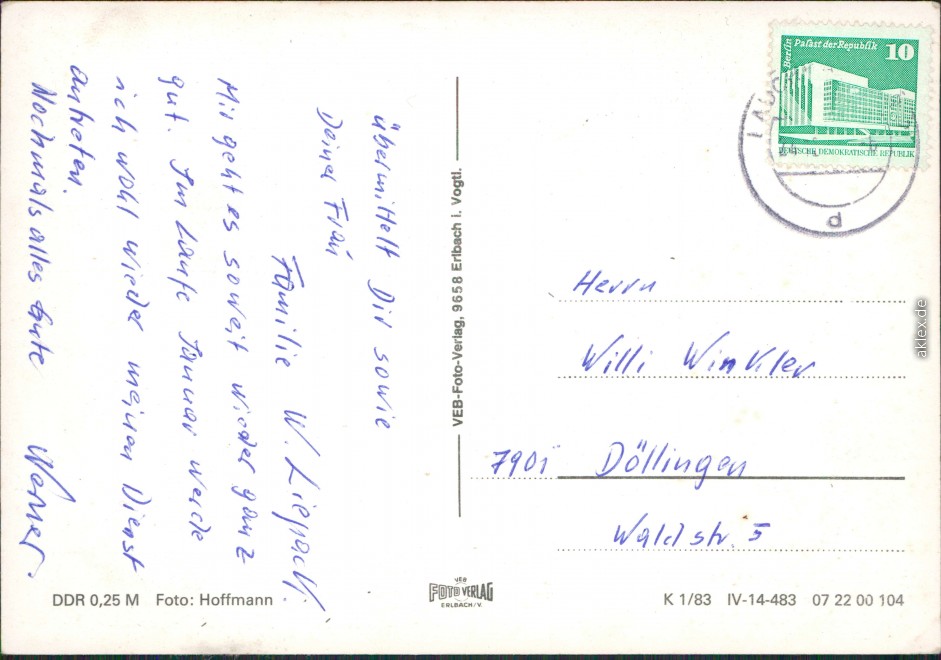 übermittelt Dir sowie
Deiner Frau
Familie W. Liepack.
Mir geht es soweit wieder ganz
gut. Im Laufe Januar werde
ich wohl wieder meinen Dienst
antreten.
Nochmals alles Gute
Werner.
VEB-Foto-Verlag, 9658 Erlbach i. Vogtl.
Berlin
Palast der Republik
10
DEUTSCHE DEMOKRATISCHE REPUBLIK
d
Herrn
Willi Winkler
7901 Döllingen
Waldstr. 5
DDR 0,25 M Foto: Hoffmann
VEB
FOTO VERLAG
ERLBACH/V.
K 1/83 IV-14-483 07 22 00 104
aklex.de